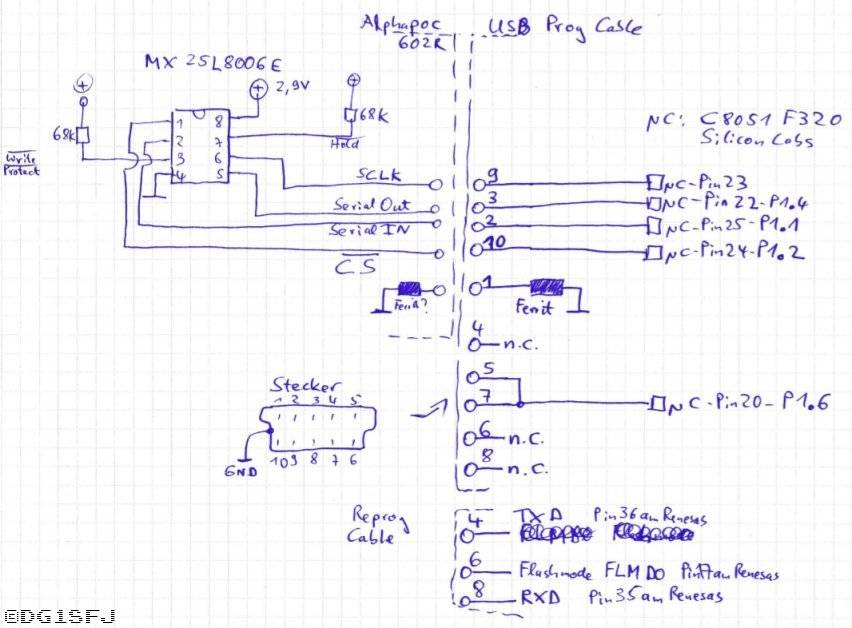 Alphapoc
602R
USB Prog Cable
MX 25L8006E
2,9V
68K
68K
Hold
Write
Protect
1 8
2 7
3 6
4 5
µC: C8051 F320
Silicon Labs
SCLK
9
µC-Pin23
Serial Out
3
µC-Pin 22-P1.4
Serial IN
2
µC-Pin25-P1.1
CS
10
µC-Pin24-P1.2
Ferrit?
1
Ferrit
4
n.c.
5
7
µC-Pin20-P1.6
6
n.c.
8
n.c.
Stecker
1 2 3 4 5
10 9 8 7 6
GND
Reprog
Cable
4 TXD Pin36 am Renesas
6 Flashmode FLMD0 Pin7 am Renesas
8 RXD Pin35 am Renesas
@DG1SFJ